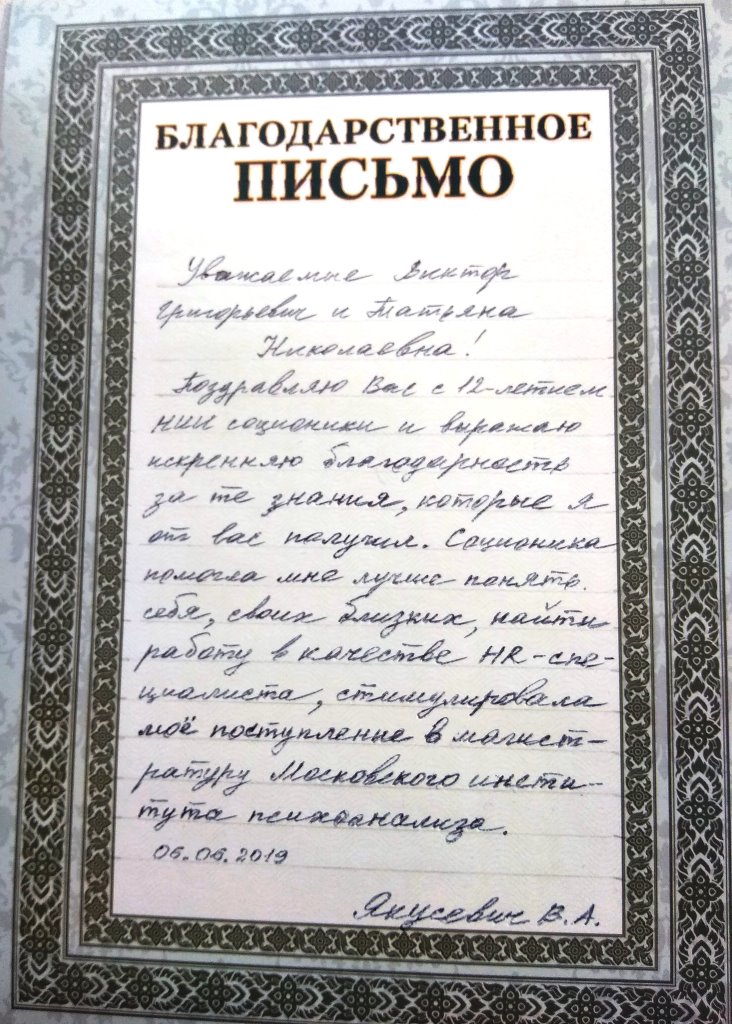 БЛАГОДАРСТВЕННОЕ
ПИСЬМО
Уважаемые Виктор
Григорьевич и Татьяна
Николаевна!
Поздравляю Вас с 12-летием
НИИ соционики и выражаю
искреннюю благодарность
за те знания, которые я
от вас получил. Соционика
помогла мне лучше понять
себя, своих близких, найти
работу в качестве HR-спе-
циалиста, стимулировала
моё поступление в магист-
ратуру Московского инсти-
тута психоанализа.
06.06.2019
Якусевич В.А.